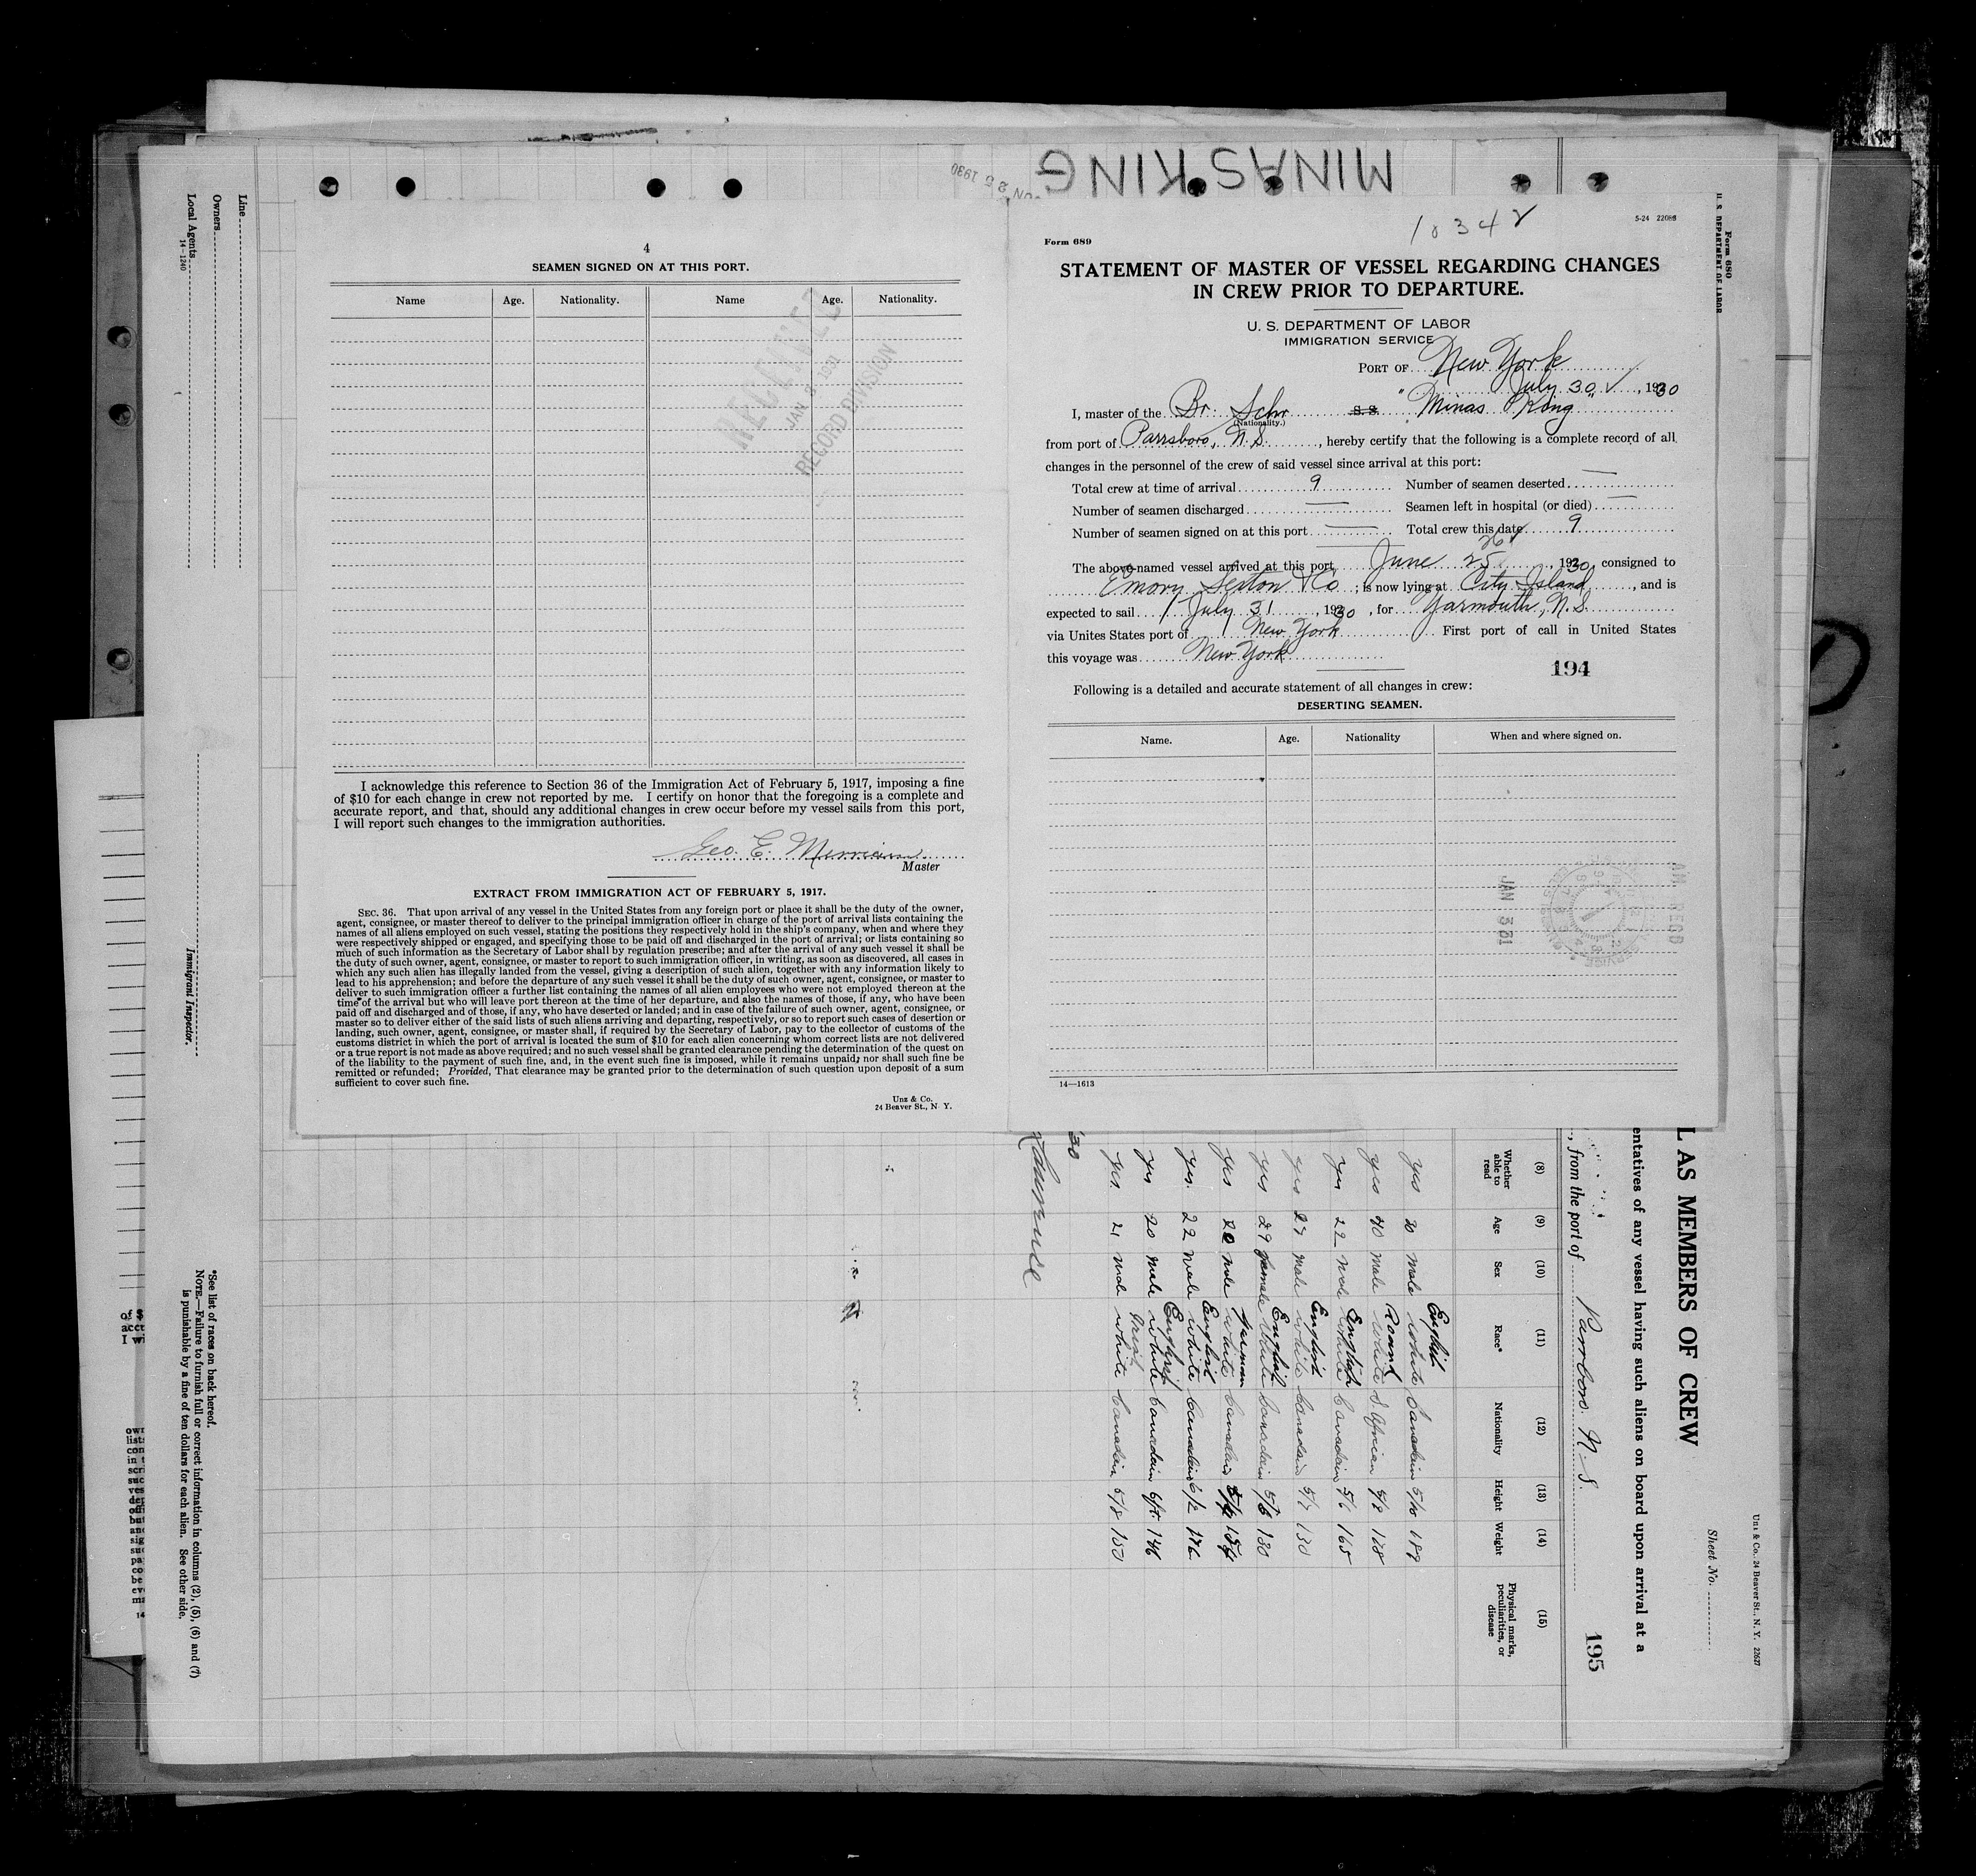 MINAS KING
JUN 25 1930
Line
Owners
Local Agents
14-1240
Immigrant Inspector.
*See list of races on back hereof.
NOTE.—Failure to furnish full or correct information in columns (2), (5), (6) and (7)
is punishable by a fine of ten dollars for each alien. See other side.
4
SEAMEN SIGNED ON AT THIS PORT.
Name Age. Nationality. Name Age. Nationality.
RECEIVED
JAN 3 1931
RECORD DIVISION
I acknowledge this reference to Section 36 of the Immigration Act of February 5, 1917, imposing a fine
of $10 for each change in crew not reported by me. I certify on honor that the foregoing is a complete and
accurate report, and that, should any additional changes in crew occur before my vessel sails from this port,
I will report such changes to the immigration authorities.
Geo. E. Merriam
Master
EXTRACT FROM IMMIGRATION ACT OF FEBRUARY 5, 1917.
SEC. 36. That upon arrival of any vessel in the United States from any foreign port or place it shall be the duty of the owner,
agent, consignee, or master thereof to deliver to the principal immigration officer in charge of the port of arrival lists containing the
names of all aliens employed on such vessel, stating the positions they respectively hold in the ship's company, when and where they
were respectively shipped or engaged, and specifying those to be paid off and discharged in the port of arrival; or lists containing so
much of such information as the Secretary of Labor shall by regulation prescribe; and after the arrival of any such vessel it shall be
the duty of such owner, agent, consignee, or master to report to such immigration officer, in writing, as soon as discovered, all cases in
which any such alien has illegally landed from the vessel, giving a description of such alien, together with any information likely to
lead to his apprehension; and before the departure of any such vessel it shall be the duty of such owner, agent, consignee, or master to
deliver to such immigration officer a further list containing the names of all alien employees who were not employed thereon at the
time of the arrival but who will leave port thereon at the time of her departure, and also the names of those, if any, who have been
paid off and discharged and of those, if any, who have deserted or landed; and in case of the failure of such owner, agent, consignee, or
master so to deliver either of the said lists of such aliens arriving and departing, respectively, or so to report such cases of desertion or
landing, such owner, agent, consignee, or master shall, if required by the Secretary of Labor, pay to the collector of customs of the
customs district in which the port of arrival is located the sum of $10 for each alien concerning whom correct lists are not delivered
or a true report is not made as above required; and no such vessel shall be granted clearance pending the determination of the quest on
of the liability to the payment of such fine, and, in the event such fine is imposed, while it remains unpaid; nor shall such fine be
remitted or refunded; Provided, That clearance may be granted prior to the determination of such question upon deposit of a sum
sufficient to cover such fine.
UNZ & Co.
24 Beaver St., N. Y.
5-24 22088
Form 689
STATEMENT OF MASTER OF VESSEL REGARDING CHANGES
IN CREW PRIOR TO DEPARTURE.
U. S. DEPARTMENT OF LABOR
IMMIGRATION SERVICE
PORT OF New York
July 30, 1930
I, master of the Br. Schr S.S. "Minas King"
(Nationality.)
from port of Parrsboro, N.S., hereby certify that the following is a complete record of all
changes in the personnel of the crew of said vessel since arrival at this port:
Total crew at time of arrival 9 Number of seamen deserted —
Number of seamen discharged — Seamen left in hospital (or died) —
Number of seamen signed on at this port — Total crew this date 9
26
The above-named vessel arrived at this port June 25, 1930, consigned to
Emory Sexton & Co; is now lying at City Island, and is
expected to sail July 31, 1930, for Yarmouth, N.S.
via Unites States port of New York. First port of call in United States
this voyage was New York
194
Following is a detailed and accurate statement of all changes in crew:
DESERTING SEAMEN.
Name. Age. Nationality When and where signed on.
JAN 3 31
AM RECD
14—1613
Form 680
U. S. DEPARTMENT OF LABOR
UNZ & Co., 24 Beaver St., N. Y. 22627
Sheet No.
L AS MEMBERS OF CREW
entatives of any vessel having such aliens on board upon arrival at a
, from the port of Parrsboro. N. S.
195
(8) (9) (10) (11) (12) (13) (14) (15)
Whether able to read Age Sex Race* Nationality Height Weight Physical marks, peculiarities, or disease
yes 20 male English white Canadian 5/10 189
yes 40 male white S. African 5/8 168
yes 22 male English white Canadian 5/6 165
yes 27 male English white Canadian 5/7 130
yes 29 female English white Canadian 5/6 130
yes 20 male German white Canadian 154
yes. 22 male English white Canadian 6/2 176
yes 20 male English white Canadian 6ft. 146
yes 21 male Irish white Canadian 5/8 150
'30